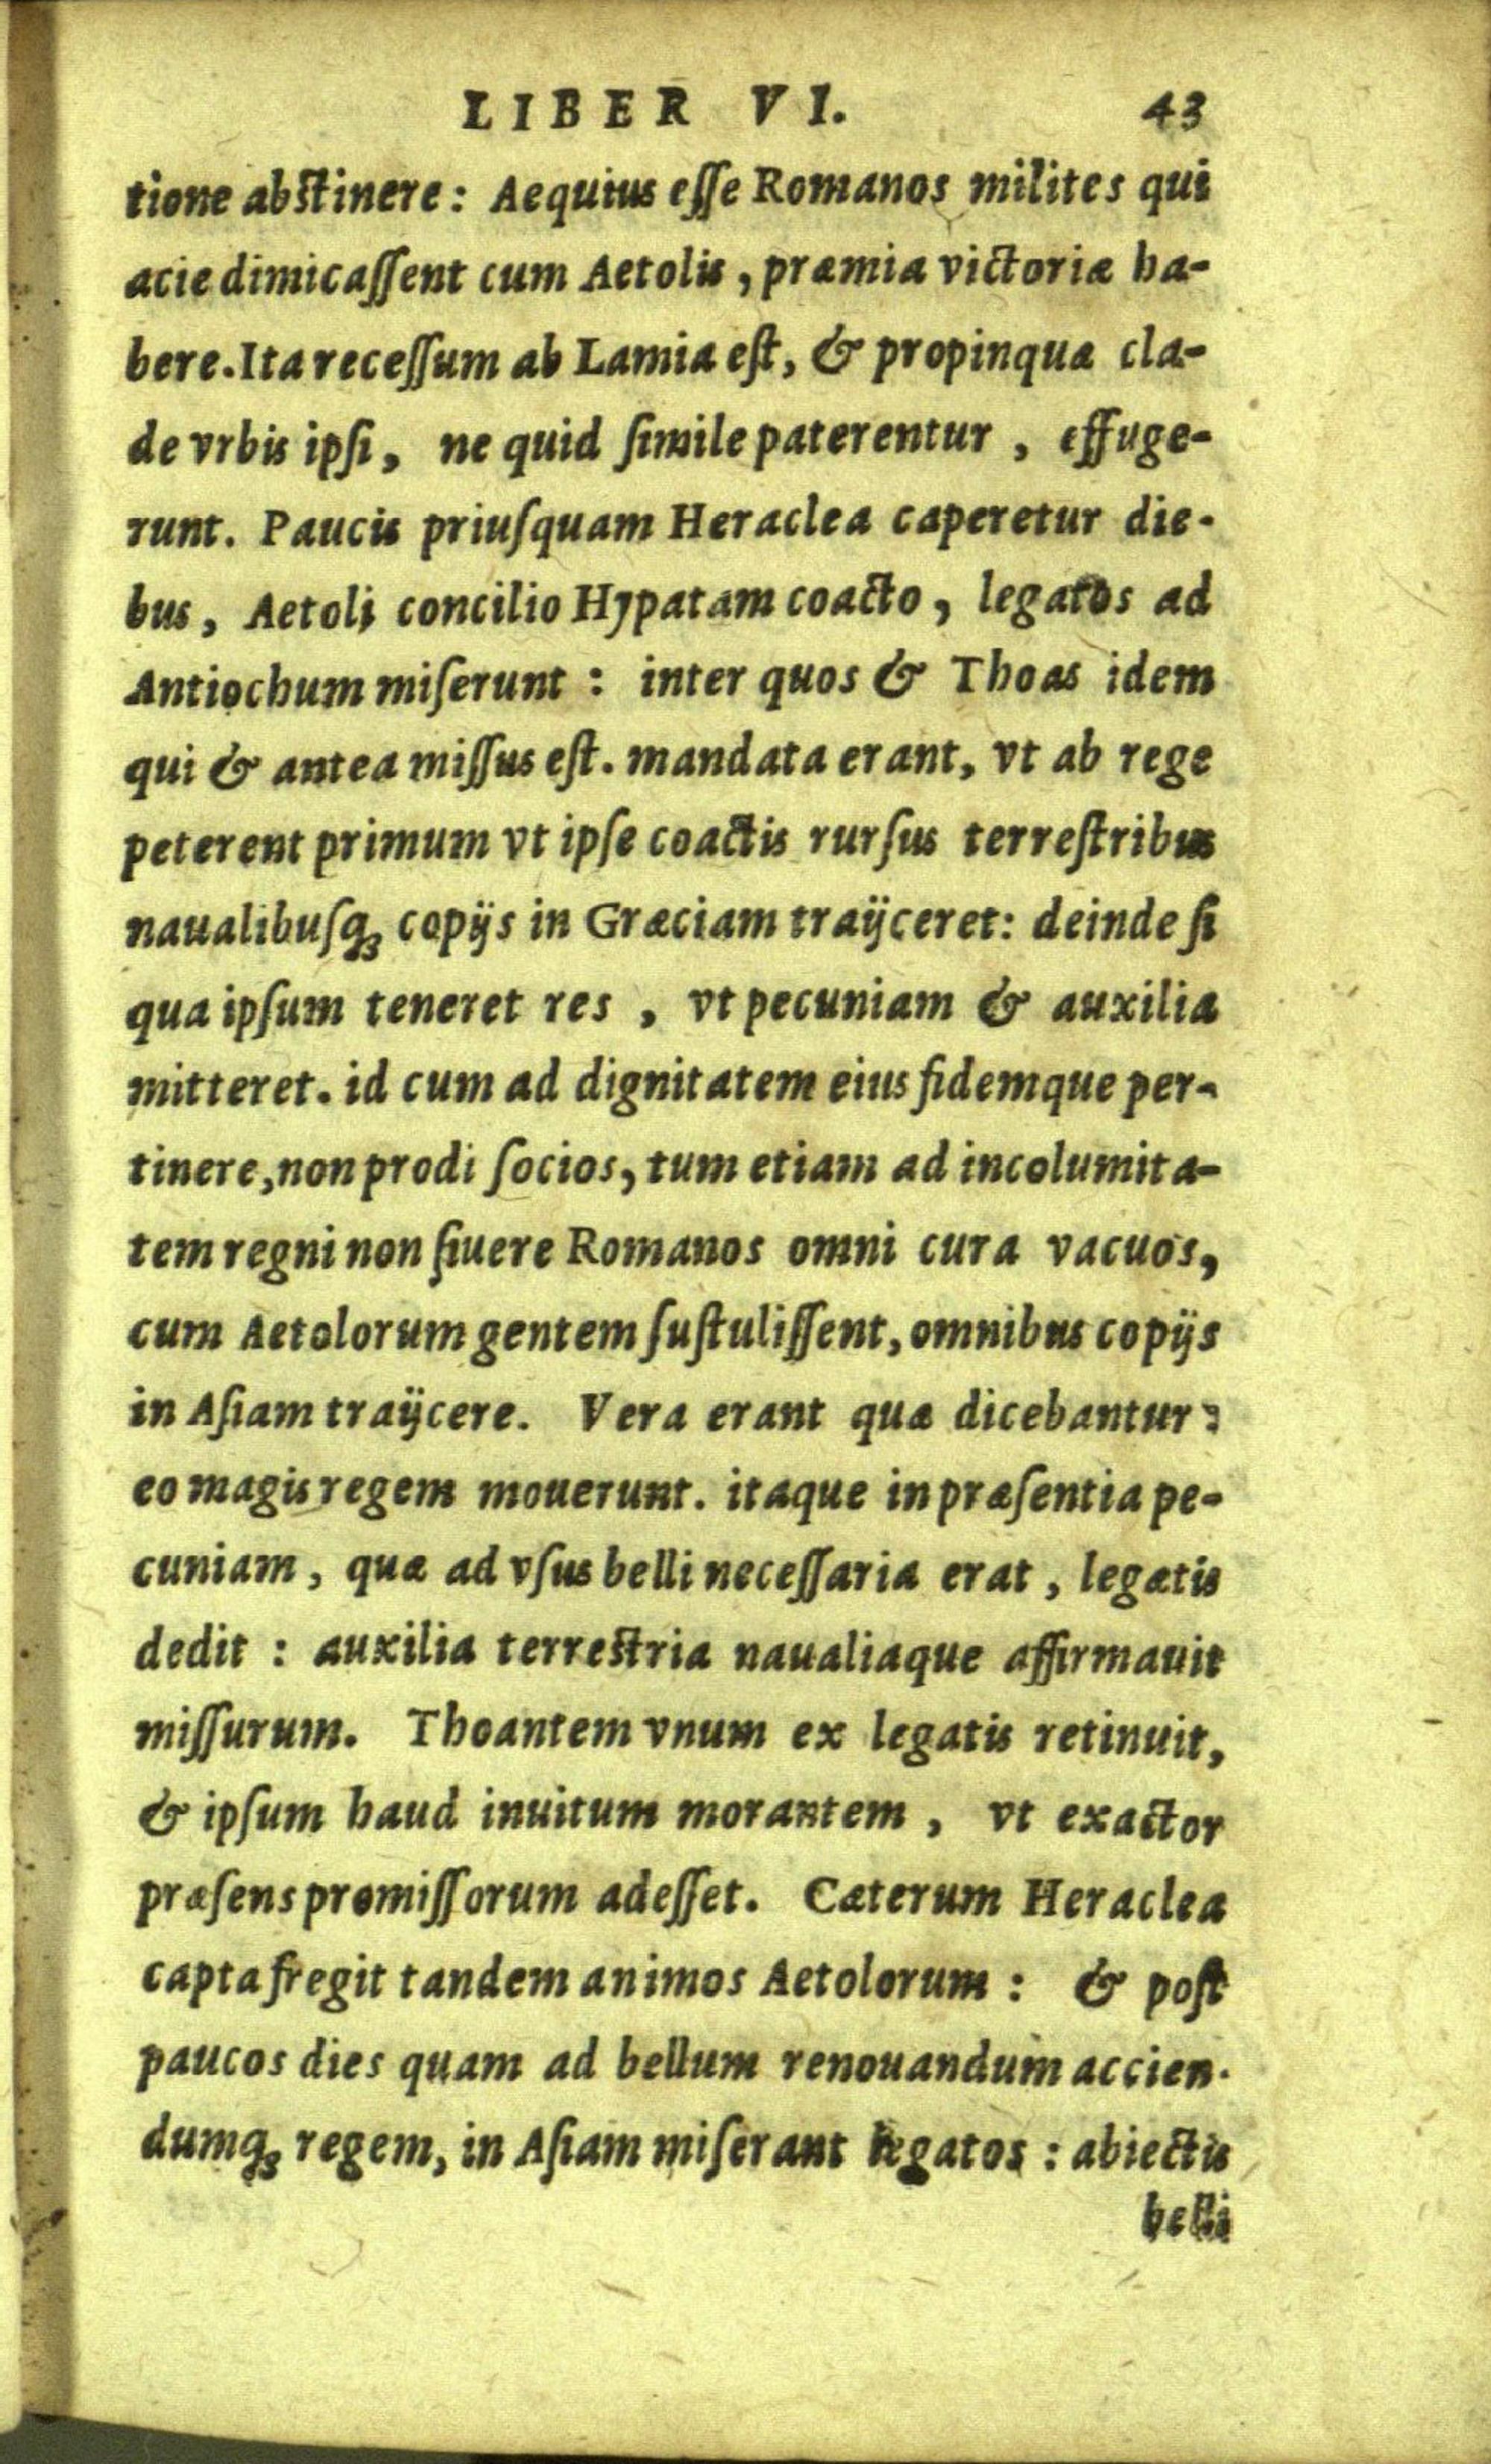 LIBER VI. 43
tione abstinere: Aequius esse Romanos milites qui
acie dimicassent cum Aetolis, præmia victoriæ ha-
bere. Ita recessum ab Lamia est, & propinquæ cla-
de vrbis ipsi, ne quid simile paterentur, effuge-
runt. Paucis priusquam Heraclea caperetur die-
bus, Aetoli concilio Hypatam coacto, legatos ad
Antiochum miserunt: inter quos & Thoas idem
qui & antea missus est. mandata erant, vt ab rege
peterent primum vt ipse coactis rursus terrestribus
naualibusq; copijs in Græciam traijceret: deinde si
qua ipsum teneret res, vt pecuniam & auxilia
mitteret. id cum ad dignitatem eius fidemque per-
tinere, non prodi socios, tum etiam ad incolumita-
tem regni non siuere Romanos omni cura vacuos,
cum Aetolorum gentem sustulissent, omnibus copijs
in Asiam traijcere. Vera erant quæ dicebantur:
eo magis regem mouerunt. itaque in præsentia pe-
cuniam, quæ ad vsus belli necessaria erat, legatis
dedit: auxilia terrestria naualiaque affirmauit
missurum. Thoantem vnum ex legatis retinuit,
& ipsum haud inuitum morantem, vt exactor
præsens promissorum adesset. Cæterum Heraclea
capta fregit tandem animos Aetolorum: & post
paucos dies quam ad bellum renouandum accien-
dumq; regem, in Asiam miserant legatos: abiectis
belli